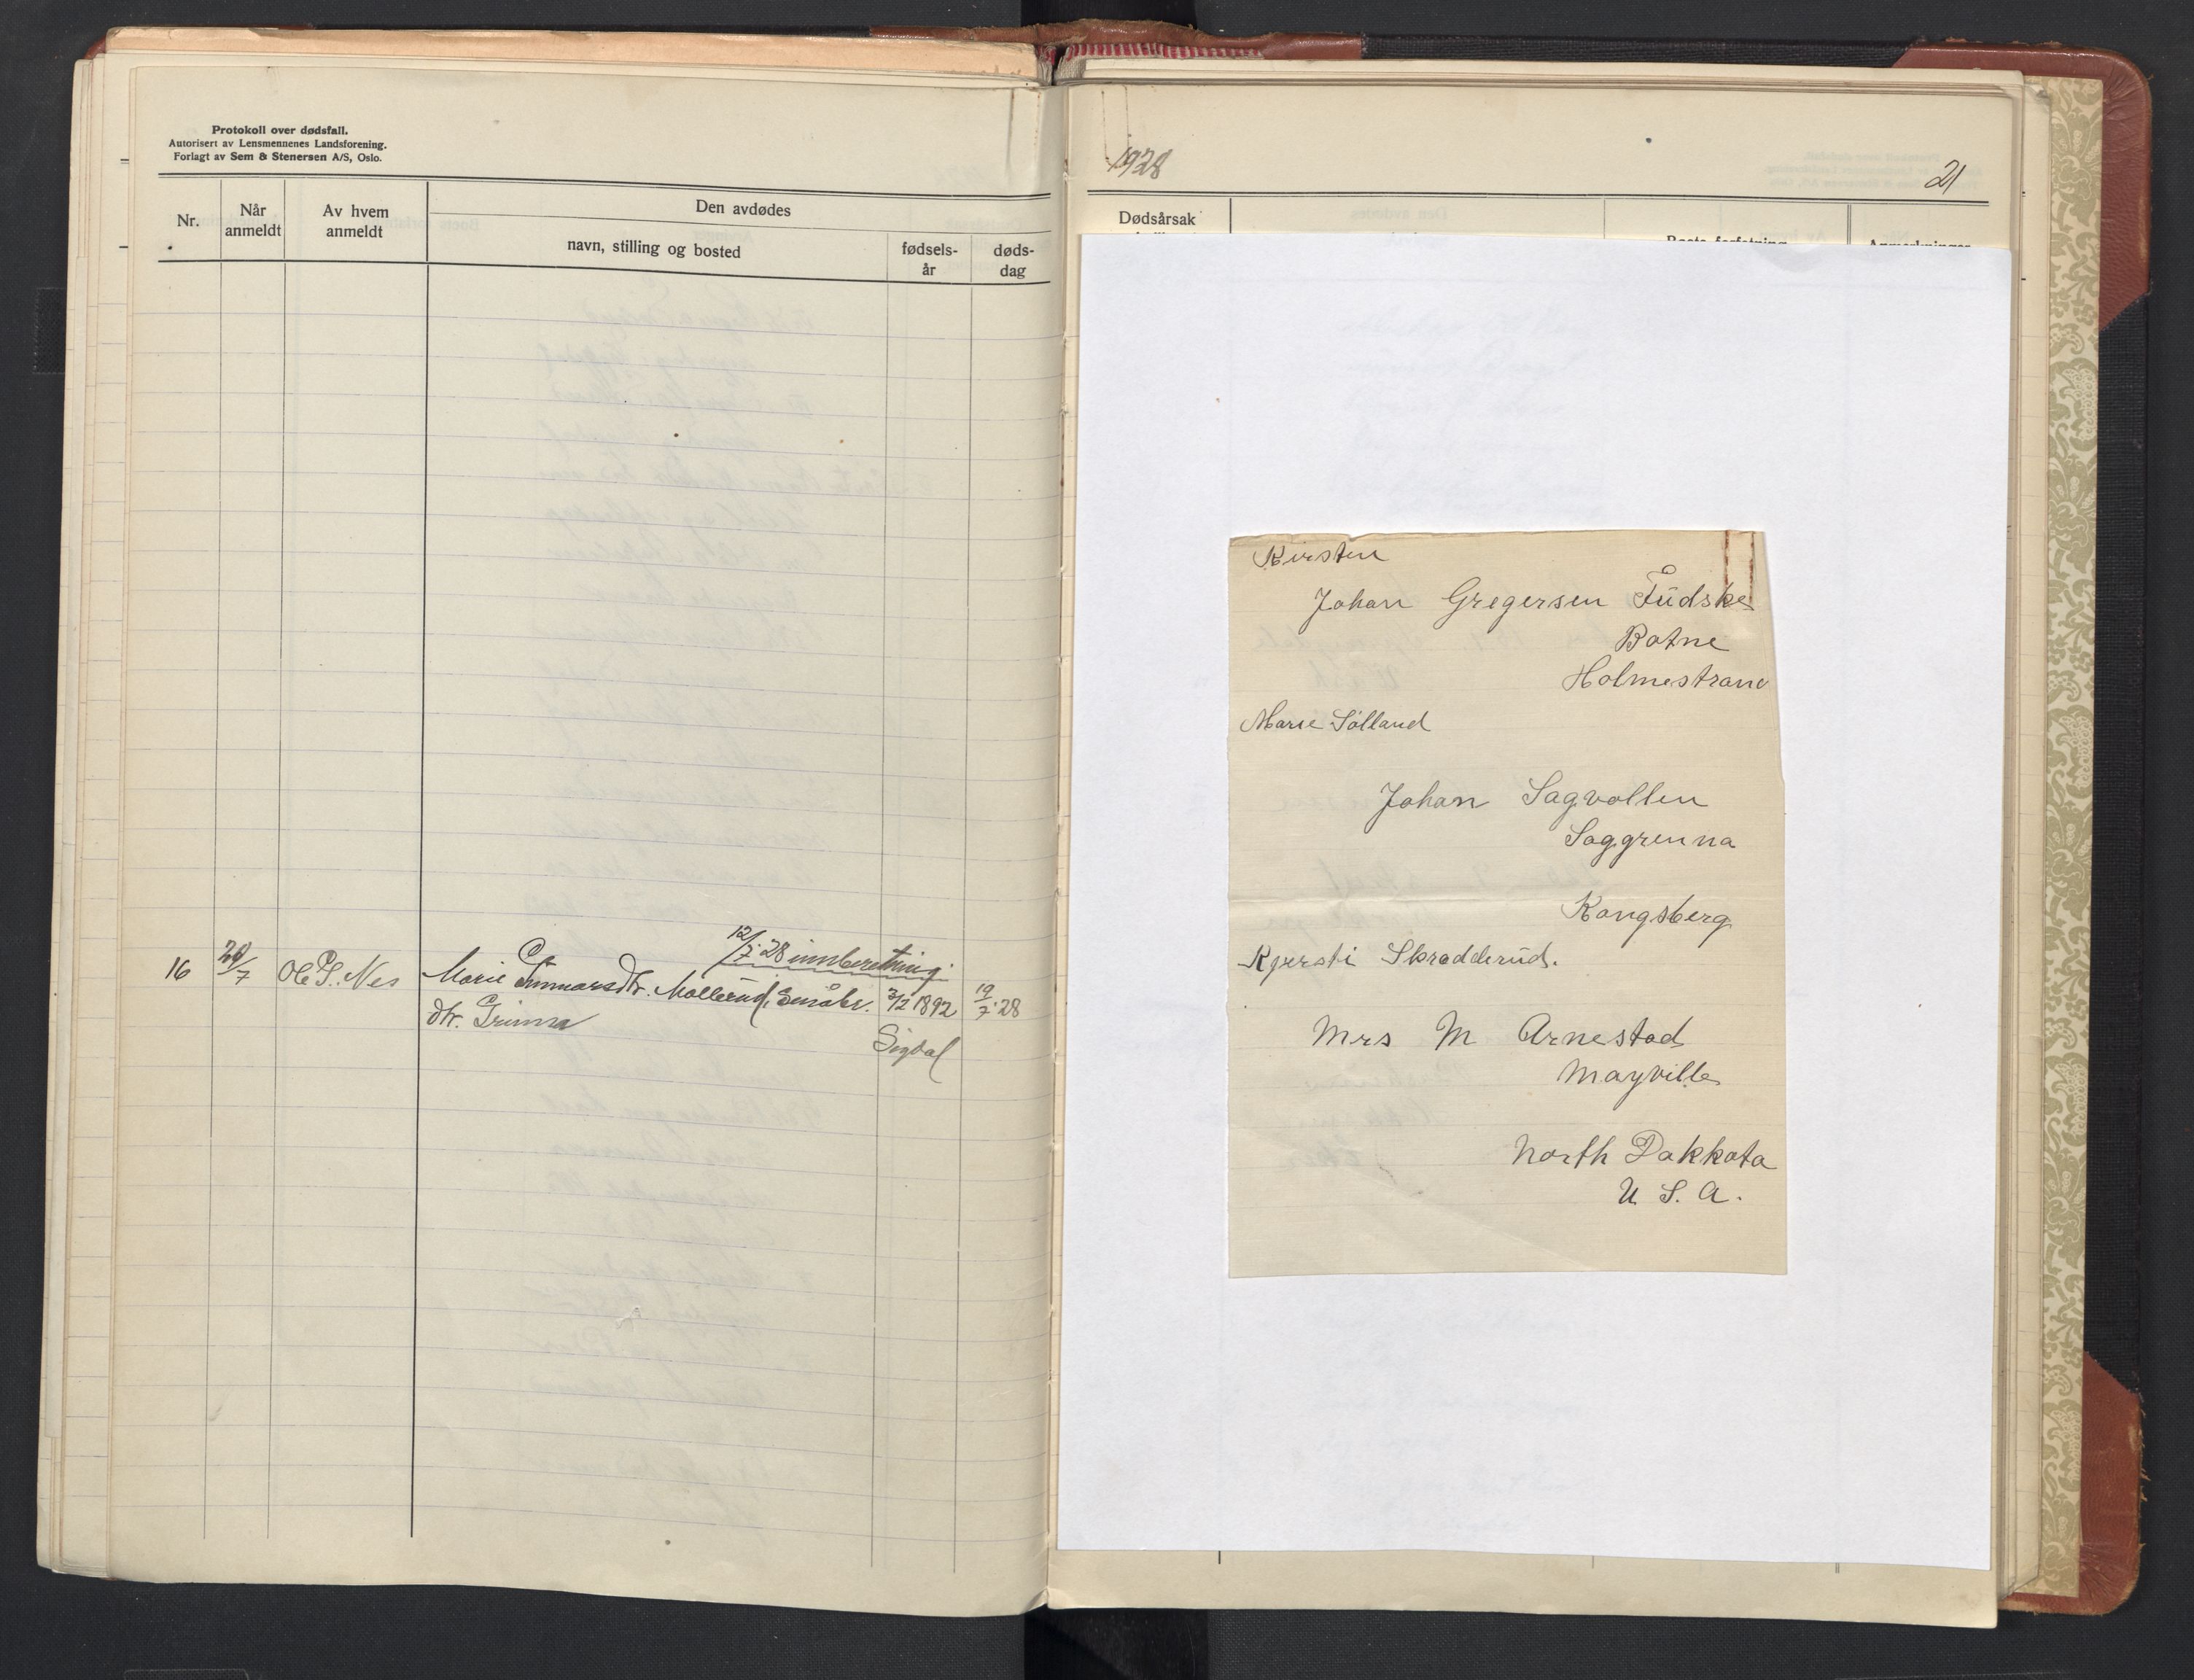 Protokoll over dødsfall.
Autorisert av Lensmennenes Landsforening.
Forlagt av Sem & Stenersen A/S, Oslo.
Nr.
Når anmeldt
Av hvem anmeldt
Den avdødes
navn, stilling og bosted
fødsels-år
døds-dag
12/7.28 innberetning.
16 20/7 Ole P. S. Nes Marie Gunnarsdtr. Mollerud, Småbr. 3/2 1892 19/7.28
dtr. Grimsa
Sigdal
1928
21
Dødsårsak
Boets forfatning
Anmerkninger
Kirsten
Johan Gregersen Fudske
Botne
Holmestrand
Marie Sølland
Johan Sagvollen
Saggrenna
Kongsberg
Kjersti Skradderud.
Mrs M Arnestad
Mayville
North Dakkota
U. S. A.